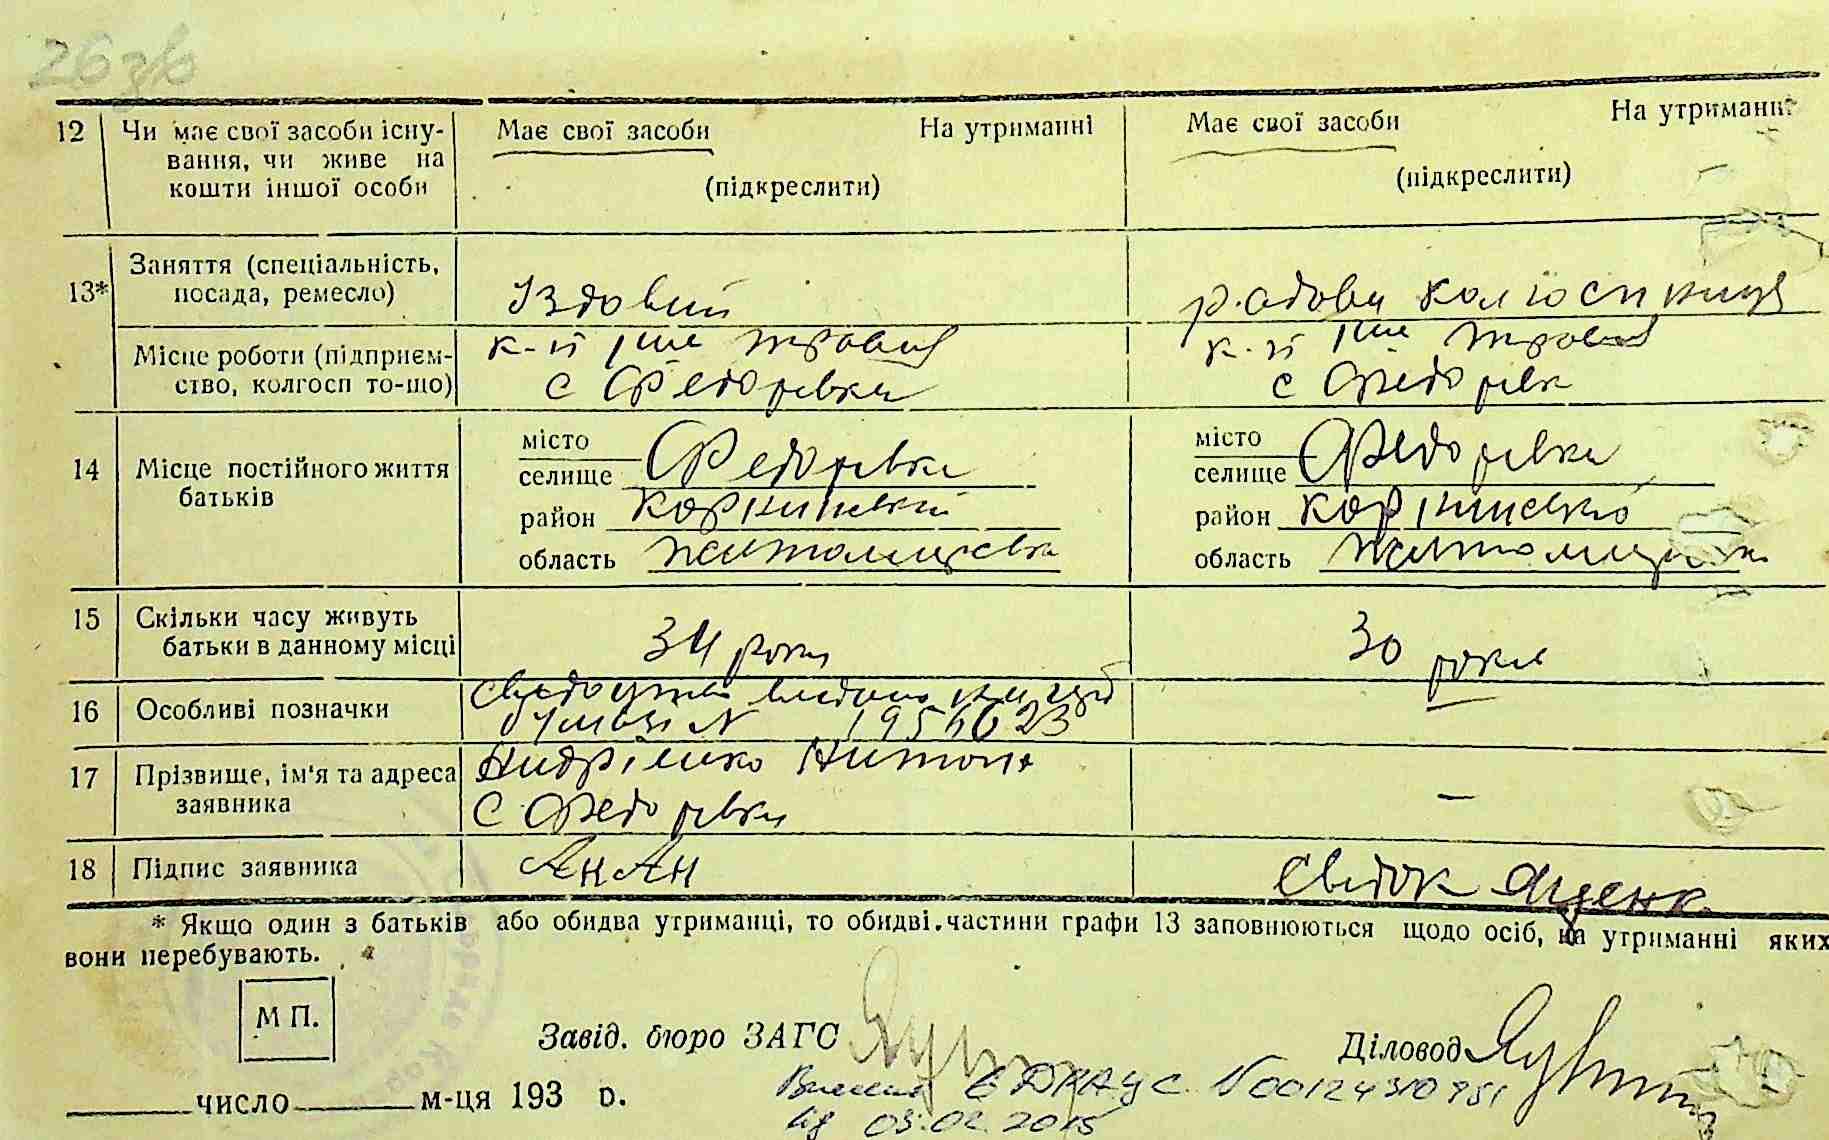 26 зв
12 Чи має свої засоби існу-
вання, чи живе на
кошти іншої особи
Має свої засоби На утриманні
(підкреслити)
Має свої засоби На утриманні
(підкреслити)
13* Заняття (спеціальність,
посада, ремесло)
Їздовий
рядова колгоспниця
Місце роботи (підприєм-
ство, колгосп то-що)
к-п 1ше травня
с Федорівка
к-п 1ше травня
с Федорівк
14 Місце постійного життя
батьків
місто
селище Федорівка
район Корнинський
область Житомирська
місто
селище Федорівка
район Корнинсько
область Житомирська
15 Скільки часу живуть
батьки в данному місці
34 роки
30 років
16 Особливі позначки
Свідоцтво видано на
N 1956623
17 Прізвище, ім'я та адреса
заявника
Андрієнко Антон
с Федорівка
–
18 Підпис заявника
АнАн
Свідок Яценк
* Якщо один з батьків або обидва утриманці, то обидві частини графи 13 заповнюються щодо осіб, на утриманні яких
вони перебувають.
М П.
Завід. бюро ЗАГС
Діловод
число м-ця 193 р.
Внесено ЄДРАЦС N00124310951
від 03.02.2015